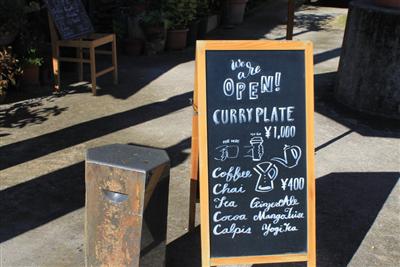 we are
OPEN!
CURRY PLATE
¥1,000
Coffee
Chai ¥400
Tea GingerAle
Cocoa MangoJuice
Calpis YogiTea